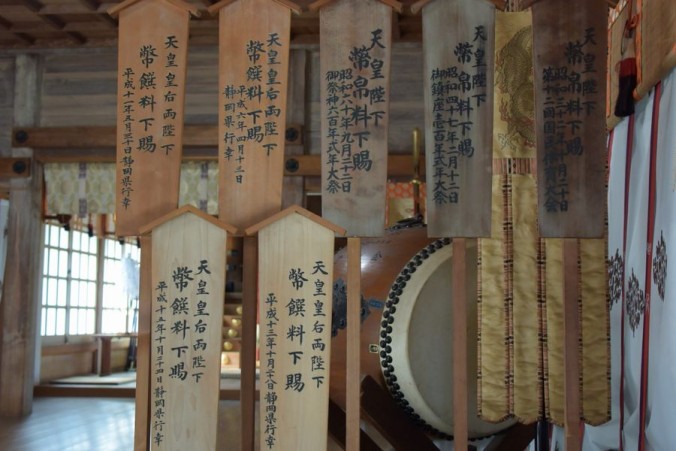 天皇陛下
幣帛料下賜
第十二回国民体育大会
天皇陛下
幣帛料下賜
昭和四十七年二月十二日
御鎮座壱百年式年大祭
天皇陛下
幣帛料下賜
昭和六十年九月二十二日
御祭神六百年式年大祭
天皇皇后両陛下
幣饌料下賜
平成六年四月十三日
静岡県行幸
天皇皇后両陛下
幣饌料下賜
平成十一年五月二十日静岡県行幸
天皇皇后両陛下
幣饌料下賜
平成十三年十月十八日静岡県行幸
天皇皇后両陛下
幣饌料下賜
平成十五年十月二十四日静岡県行幸